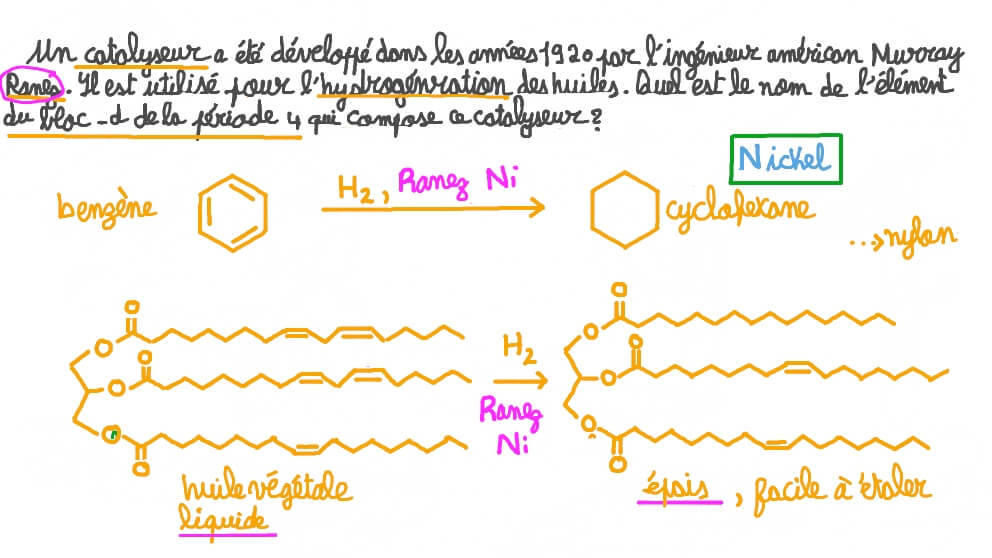 Un catalyseur a été développé dans les années 1920 par l'ingénieur américan Murray
Raney. Il est utilisé pour l'hydrogénration des huiles. Quel est le nom de l'élément
du bloc-d de la période 4 qui compose ce catalyseur?
Nickel
benzène
H2, Raney Ni
cyclohexane
...→nylon
O
O
O
O
O
O
H2
Raney
Ni
O
O
O
O
O
O
huile végétale
liquide
épais, facile à étaler